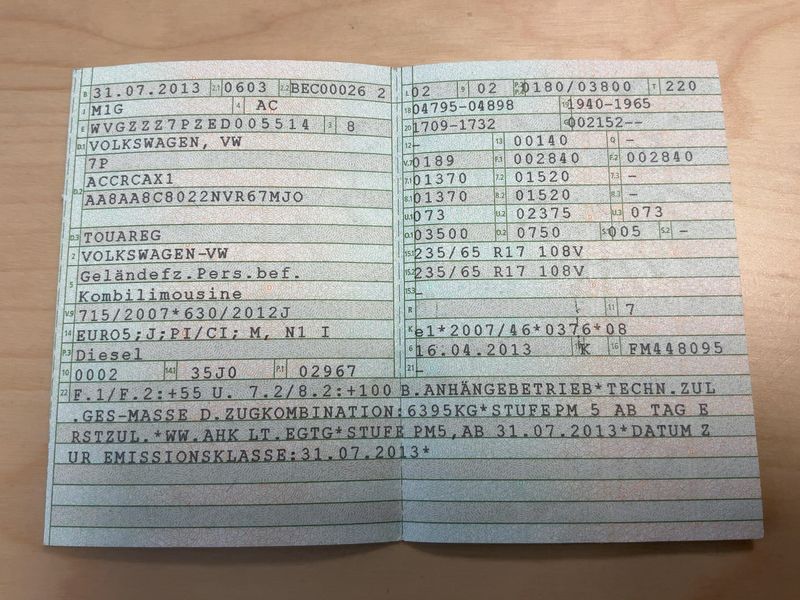 B 31.07.2013 2.1 0603 2.2 BEC00026 2
J M1G 4 AC
E WVGZZZ7PZED005514 3 8
D.1 VOLKSWAGEN, VW
7P
D.2 ACCRCAX1
AA8AA8C8022NVR67MJO
D.3 TOUAREG
2 VOLKSWAGEN-VW
5 Geländefz.Pers.bef.
Kombilimousine
V.9 715/2007*630/2012J
14 EURO5;J;PI/CI; M, N1 I
P.3 Diesel
10 0002 14.1 35J0 P.1 02967
L 02 9 02 0180/03800 T 220
18 04795-04898 19 1940-1965
20 1709-1732 G 002152--
12 - 13 00140 Q -
V.7 0189 F.1 002840 F.2 002840
7.1 01370 7.2 01520 7.3 -
8.1 01370 8.2 01520 8.3 -
U.1 073 U.2 02375 U.3 073
O.1 03500 O.2 0750 S.1 005 S.2 -
15.1 235/65 R17 108V
15.2 235/65 R17 108V
15.3 -
R 11 7
K e1*2007/46*0376*08
6 16.04.2013 17 K 16 FM448095
21 -
22 F.1/F.2:+55 U. 7.2/8.2:+100 B.ANHÄNGEBETRIEB*TECHN.ZUL
.GES-MASSE D.ZUGKOMBINATION:6395KG*STUFEPM 5 AB TAG E
RSTZUL.*WW.AHK LT.EGTG*STUFE PM5,AB 31.07.2013*DATUM Z
UR EMISSIONSKLASSE:31.07.2013*